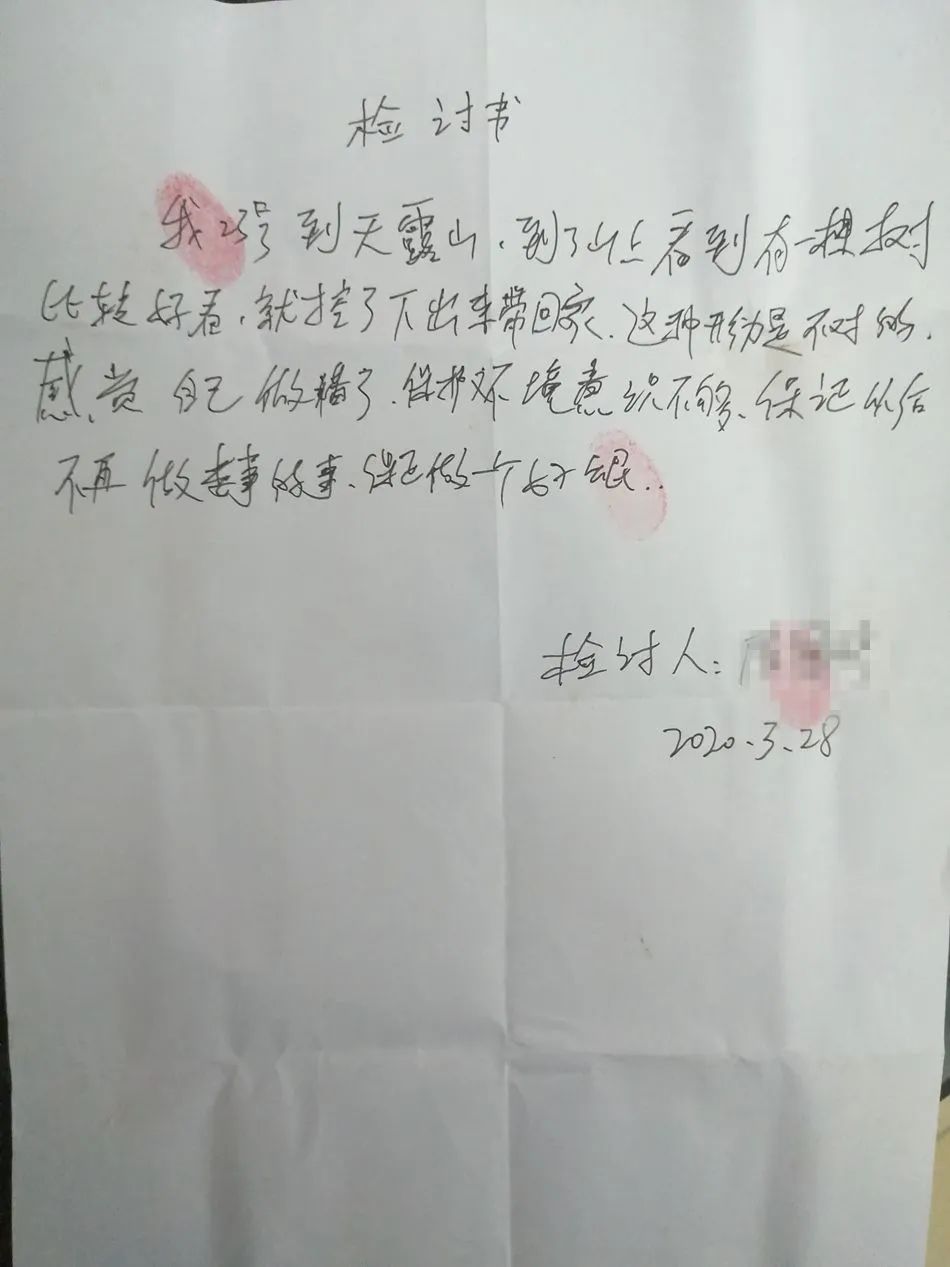 检讨书
我23号到天露山,到了山上看到有一棵树
比较好看,就挖了下出来带回家.这种行为是不对的.
感觉自己做错了.保护环境意识不够、保证从后
不再做 的事、保证做一个好
检讨人:
2020.3.28